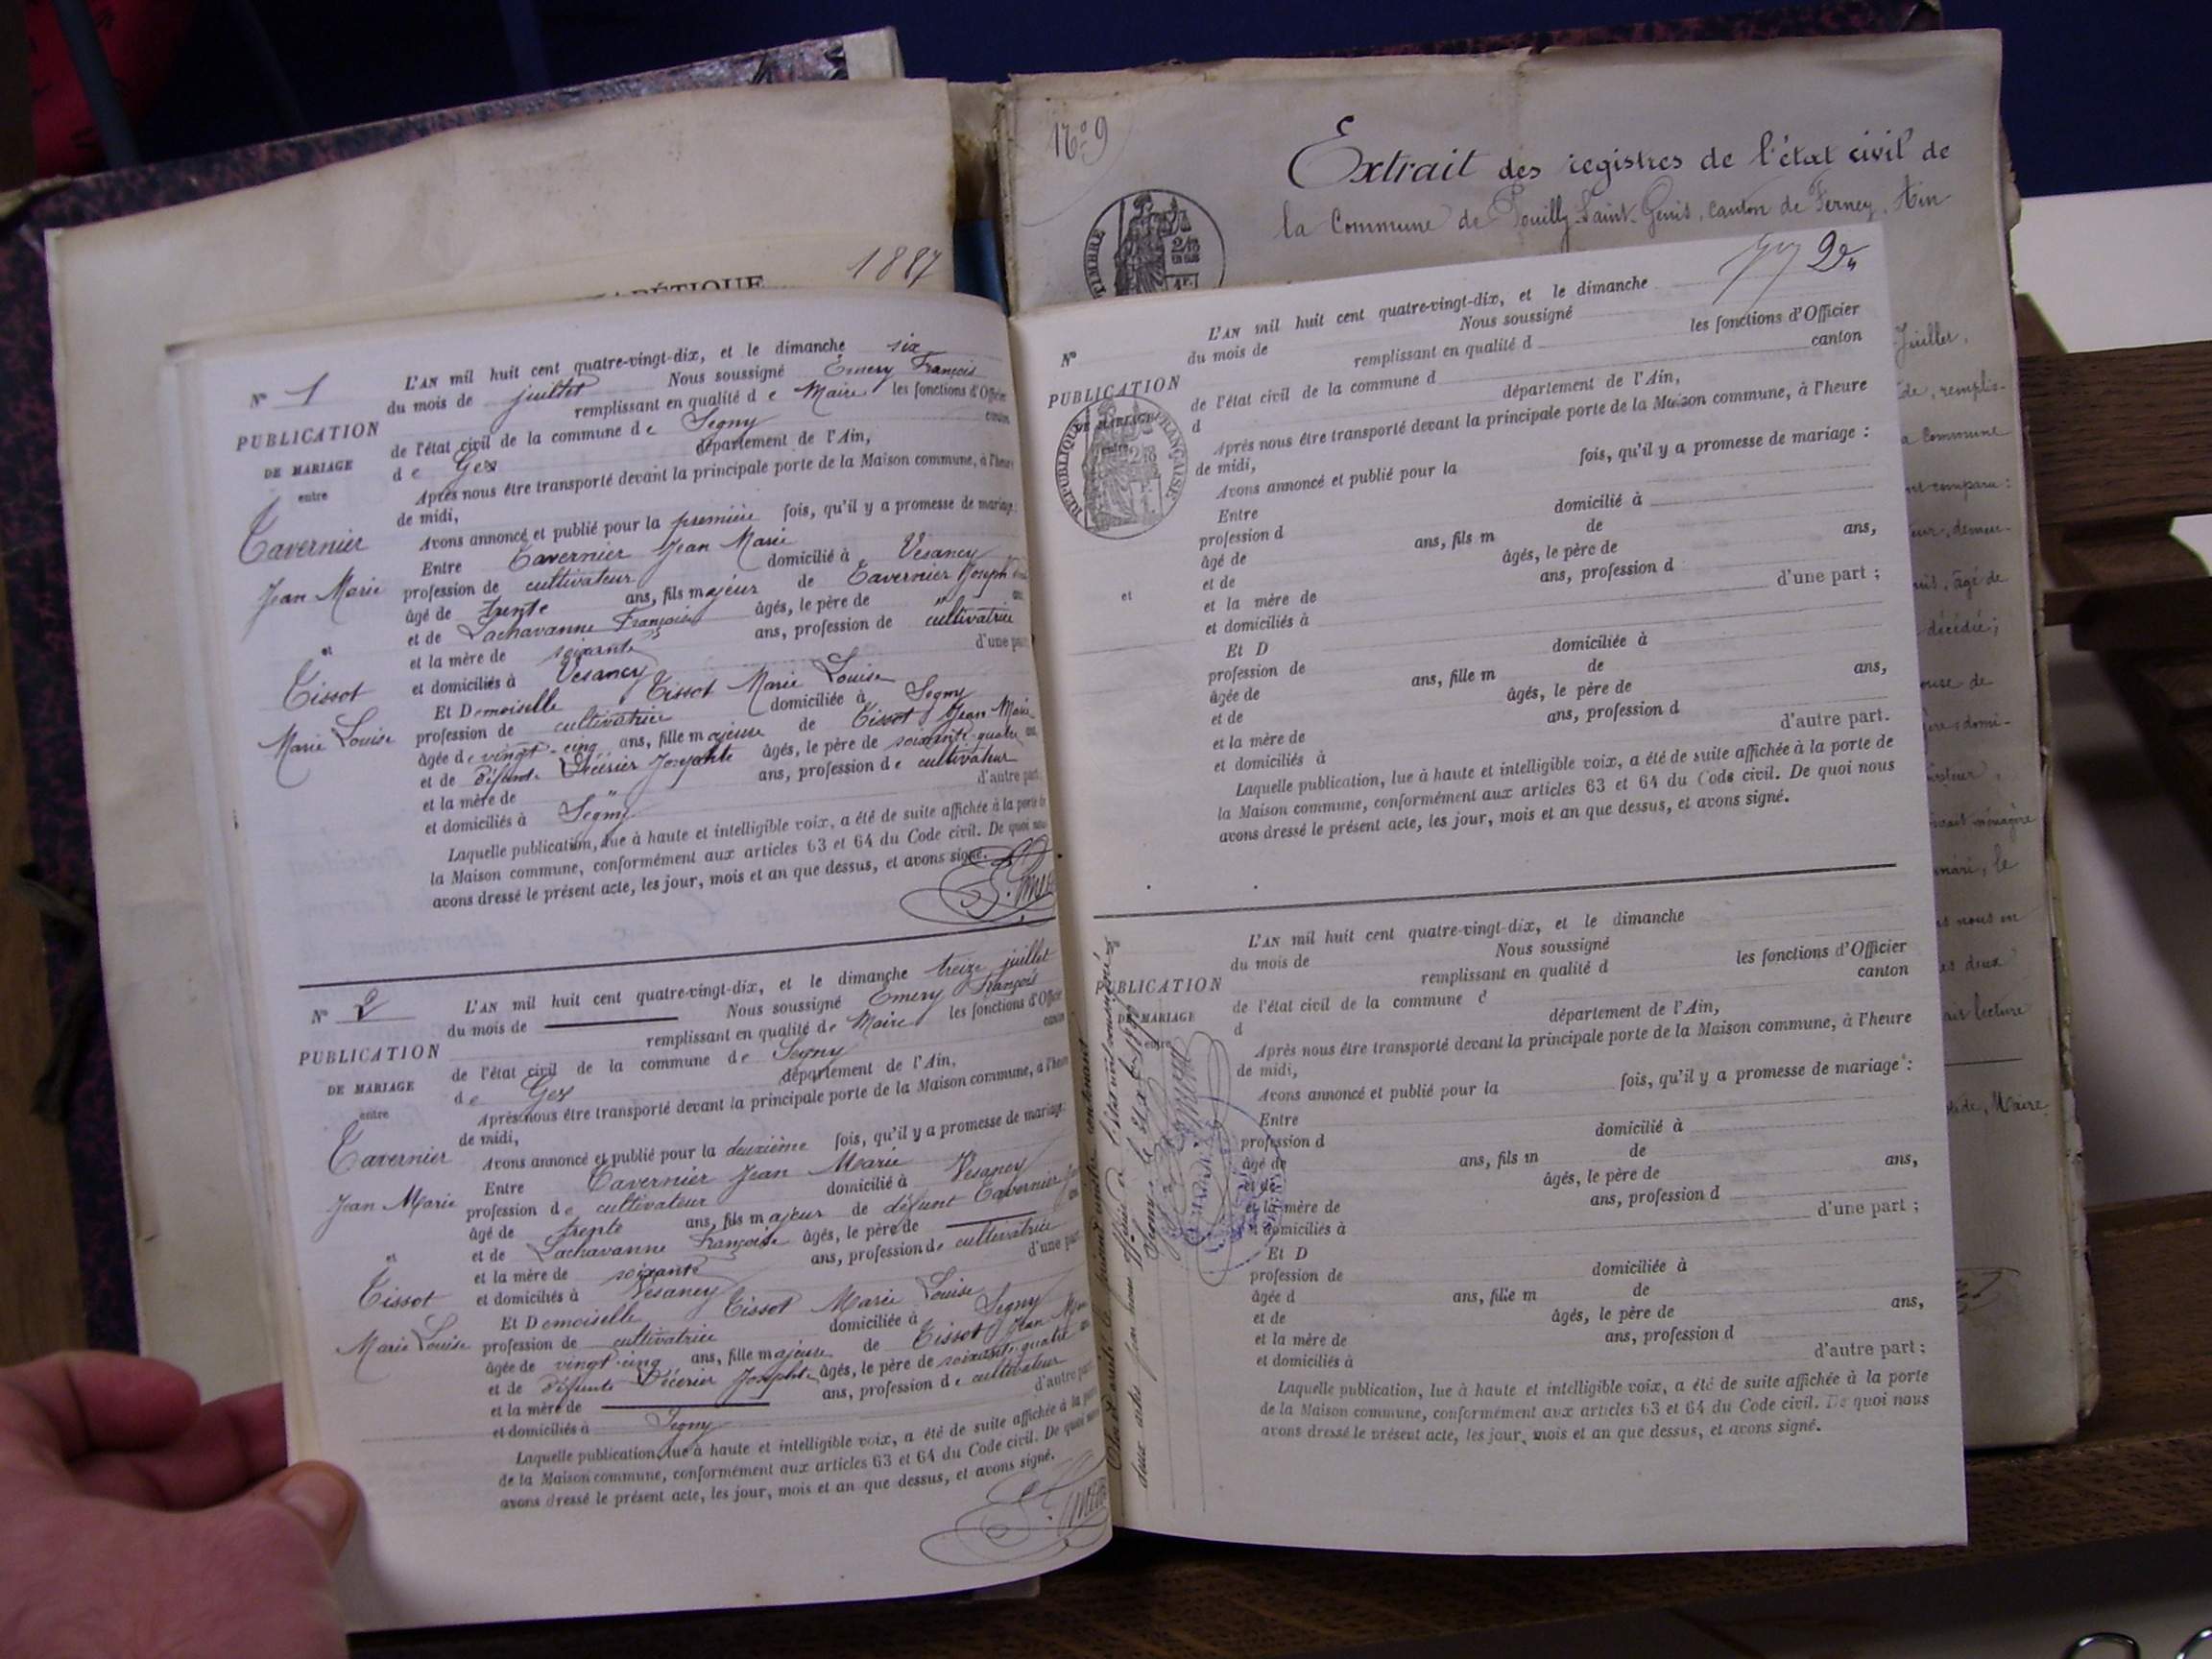 1887
N° 1
PUBLICATION
DE MARIAGE
entre
Tavernier
Jean Marie
et
Tissot
Marie Louise
L'AN mil huit cent quatre-vingt-dix, et le dimanche six
du mois de juillet Nous soussigné Emery François
remplissant en qualité de Maire les fonctions d'Officier
de l'état civil de la commune de Segny canton
de Gex département de l'Ain,
Après nous être transporté devant la principale porte de la Maison commune, à l'heure
de midi,
Avons annoncé et publié pour la première fois, qu'il y a promesse de mariage :
Entre Tavernier Jean Marie
profession de cultivateur domicilié à Vesancy
âgé de trente ans, fils majeur de Tavernier Joseph
et de Lachavanne Françoise âgés, le père de " ans,
et la mère de soixante ans, profession de cultivatrice
et domiciliés à Vesancy d'une part
Et Demoiselle Tissot Marie Louise
profession de cultivatrice domiciliée à Segny
âgée de vingt-cinq ans, fille majeure de Tissot Jean Marie
et de défunte Décrier Josephte âgés, le père de soixante quatre ans
et la mère de " ans, profession de cultivateur
et domiciliés à Segny d'autre part.
Laquelle publication, lue à haute et intelligible voix, a été de suite affichée à la porte de
la Maison commune, conformément aux articles 63 et 64 du Code civil. De quoi nous
avons dressé le présent acte, les jour, mois et an que dessus, et avons signé.
F. Emery
N° 2
PUBLICATION
DE MARIAGE
entre
Tavernier
Jean Marie
et
Tissot
Marie Louise
L'AN mil huit cent quatre-vingt-dix, et le dimanche treize juillet
du mois de Nous soussigné Emery François
remplissant en qualité de Maire les fonctions d'Officier
de l'état civil de la commune de Segny canton
de Gex département de l'Ain,
Après nous être transporté devant la principale porte de la Maison commune, à l'heure
de midi,
Avons annoncé et publié pour la deuxième fois, qu'il y a promesse de mariage :
Entre Tavernier Jean Marie
profession de cultivateur domicilié à Vesancy
âgé de trente ans, fils majeur de défunt Tavernier
et de Lachavanne Françoise âgés, le père de ans
et la mère de soixante ans, profession de cultivatrice
et domiciliés à Vesancy d'une part
Et Demoiselle Tissot Marie Louise
profession de cultivatrice domiciliée à Segny
âgée de vingt-cinq ans, fille majeure de Tissot Jean Marie
et de défunte Décrier Josephte âgés, le père de soixante quatre ans
et la mère de ans, profession de cultivateur
et domiciliés à Segny d'autre part
Laquelle publication, lue à haute et intelligible voix, a été de suite affichée à la porte
de la Maison commune, conformément aux articles 63 et 64 du Code civil. De quoi nous
avons dressé le présent acte, les jour, mois et an que dessus, et avons signé.
F. Emery
N° 9
Extrait des registres de l'état civil de
la Commune de Pouilly-Saint-Genis, canton de Ferney, Ain
TIMBRE
N°
PUBLICATION
DE MARIAGE
entre
RÉPUBLIQUE FRANÇAISE
et
L'AN mil huit cent quatre-vingt-dix, et le dimanche
du mois de Nous soussigné
remplissant en qualité d les fonctions d'Officier
de l'état civil de la commune d canton
d département de l'Ain,
Après nous être transporté devant la principale porte de la Maison commune, à l'heure
de midi,
Avons annoncé et publié pour la fois, qu'il y a promesse de mariage :
Entre
profession d domicilié à
âgé de ans, fils m de
et de âgés, le père de ans,
et la mère de ans, profession d
et domiciliés à d'une part ;
Et D
profession de domiciliée à
âgée de ans, fille m de
et de âgés, le père de ans,
et la mère de ans, profession d
et domiciliés à d'autre part.
Laquelle publication, lue à haute et intelligible voix, a été de suite affichée à la porte de
la Maison commune, conformément aux articles 63 et 64 du Code civil. De quoi nous
avons dressé le présent acte, les jour, mois et an que dessus, et avons signé.
PUBLICATION
DE MARIAGE
entre
L'AN mil huit cent quatre-vingt-dix, et le dimanche
du mois de Nous soussigné
remplissant en qualité d les fonctions d'Officier
de l'état civil de la commune d canton
d département de l'Ain,
Après nous être transporté devant la principale porte de la Maison commune, à l'heure
de midi,
Avons annoncé et publié pour la fois, qu'il y a promesse de mariage :
Entre
profession d domicilié à
âgé de ans, fils m de
et de âgés, le père de ans,
et la mère de ans, profession d
et domiciliés à d'une part ;
Et D
profession de domiciliée à
âgée d ans, fille m de
et de âgés, le père de ans,
et la mère de ans, profession d
et domiciliés à d'autre part ;
Laquelle publication, lue à haute et intelligible voix, a été de suite affichée à la porte
de la Maison commune, conformément aux articles 63 et 64 du Code civil. De quoi nous
avons dressé le présent acte, les jour, mois et an que dessus, et avons signé.
Clos et arrêté le présent registre contenant
deux actes par nous officier de l'état civil soussigné
Juillet,
commune
comparu :
âgé de
décédé ;
ouse de
domi-
ménagère
le
nous en
deux
lecture
Maire